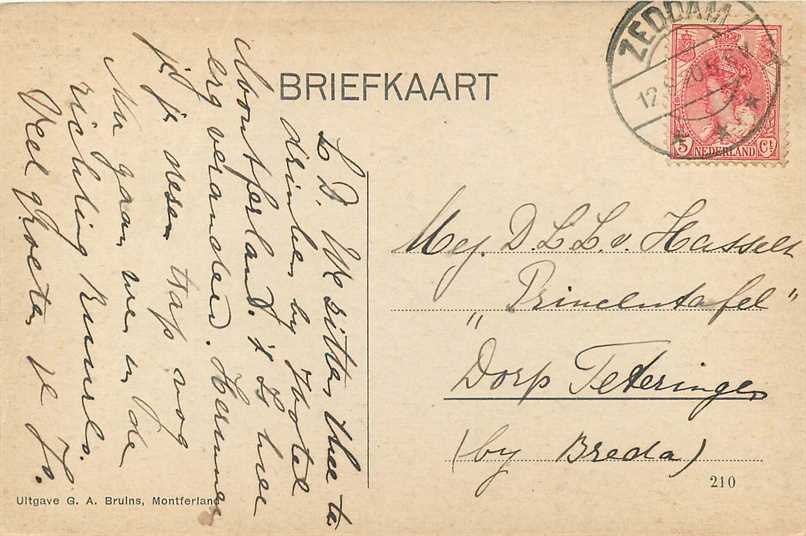 BRIEFKAART
ZEDDAM
12
5 NEDERLAND Ct
L. D. We zitten thee te
drinken by Hotel
Montferland. 't Is hier
erg veranderd. Herinner
jy je dezen trap nog
Nu gaan we in de
richting Ruurlo.
Veel groeten je Jo.
Mej. D. L. L. v. Hasselt
"Princentafel"
Dorp Teteringen
(by Breda)
210
Uitgave G. A. Bruins, Montferland